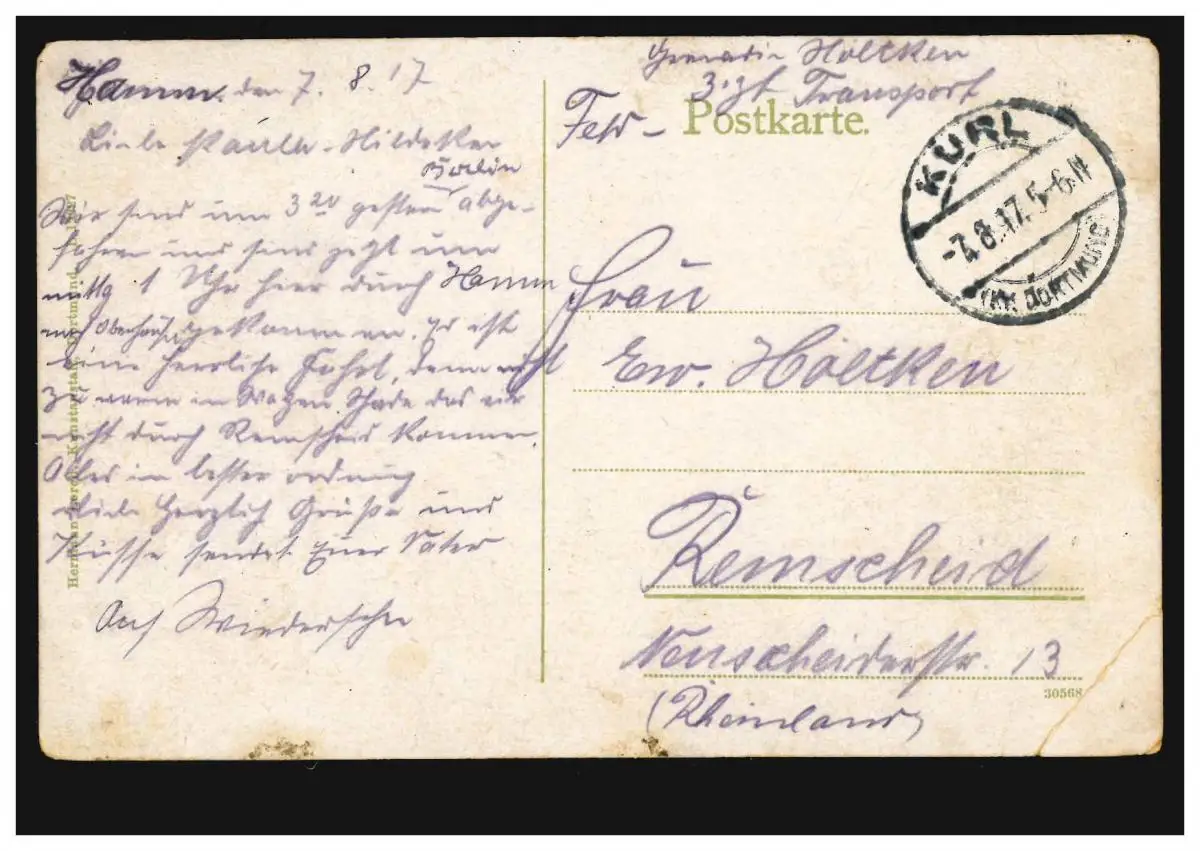 Hamm, den 7. 8. 17
Liebe Paula Hildeken
Berlin
Wir sind um 3 20 gestern abge-
fahren und sind jetzt um
mittg 1 Uhr hier durch Hamm
nach Oberhausen gekommen. Es ist
eine herrliche Fahrt, denn nicht
zu warm im Wagen Schade das wir
nicht durch Remscheid kommen.
Alles in bester ordnung
Viele Herzlich Grüße und
Küsse sendet Euer Vater
Auf Wiedersehn
Hermann Kunstanstalt, Dortmund
Grenadier Höltken
3. Zt Transport
Feld-
Postkarte.
KURL
-7.8.17. 5-6.N
(KR. DORTMUND)
Frau
Ew. Höltken
Remscheid
Neuscheiderstr. 13
(Rheinland)
30568